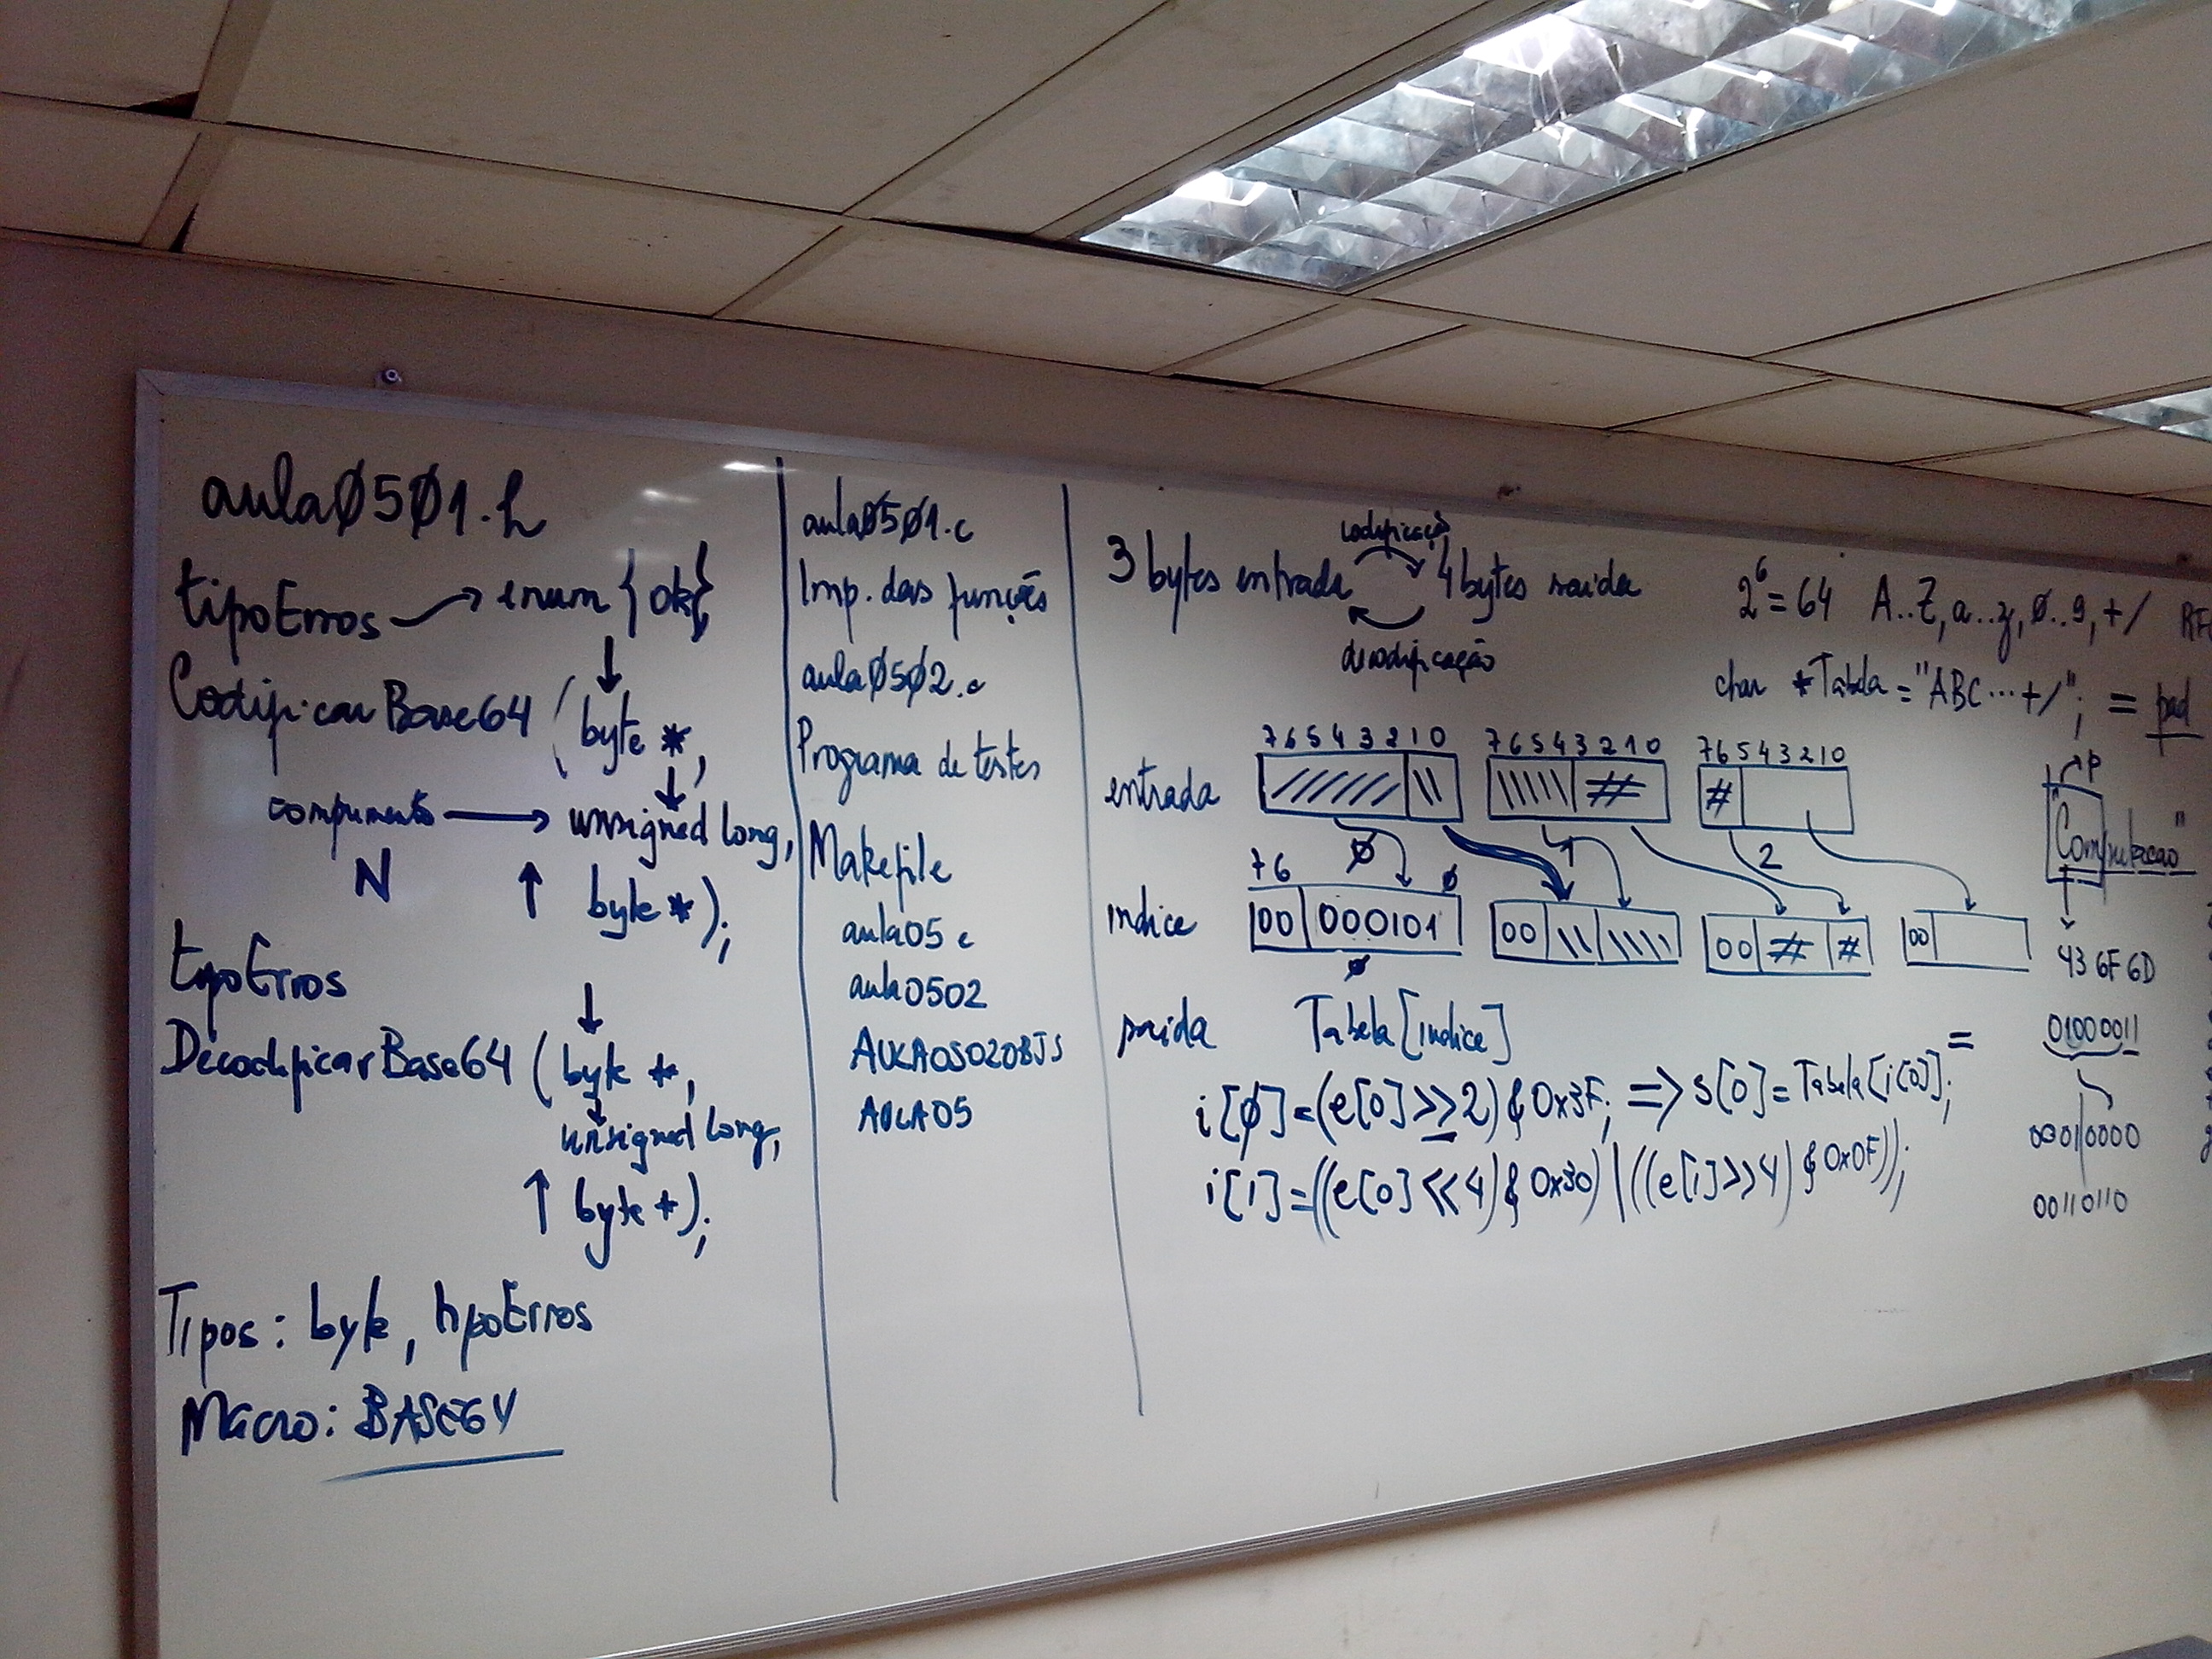 aula0501.h
tipoErros → enum {ok}
CodificarBase64 (byte *,
comprimento → unsigned long,
N
byte *);
tipoErros
DecodificarBase64 (byte *,
unsigned long,
byte *);
Tipos: byte, tipoErros
Macro: BASE64
aula0501.c
Imp. das funções
aula0502.c
Programa de testes
Makefile
aula05 e
aula0502
AULA0502OBJS
AULA05
codificação
3 bytes entrada 4 bytes saida
decodificação
2^6 = 64 A..Z, a..z, 0..9, +/
char *Tabela = "ABC...+/"; = pad
7 6 5 4 3 2 1 0 7 6 5 4 3 2 1 0 7 6 5 4 3 2 1 0
entrada # #
0 1 2
7 6 0
indice 00 000101 00 00 # # 00
0
saida Tabela[indice] =
i[0] = (e[0] >> 2) & 0x3F; => s[0] = Tabela[i[0]];
i[1] = ((e[0] << 4) & 0x30) | ((e[1] >> 4) & 0x0F));
P
"Computacao"
43 6F 6D
01000011
00010000
00110110